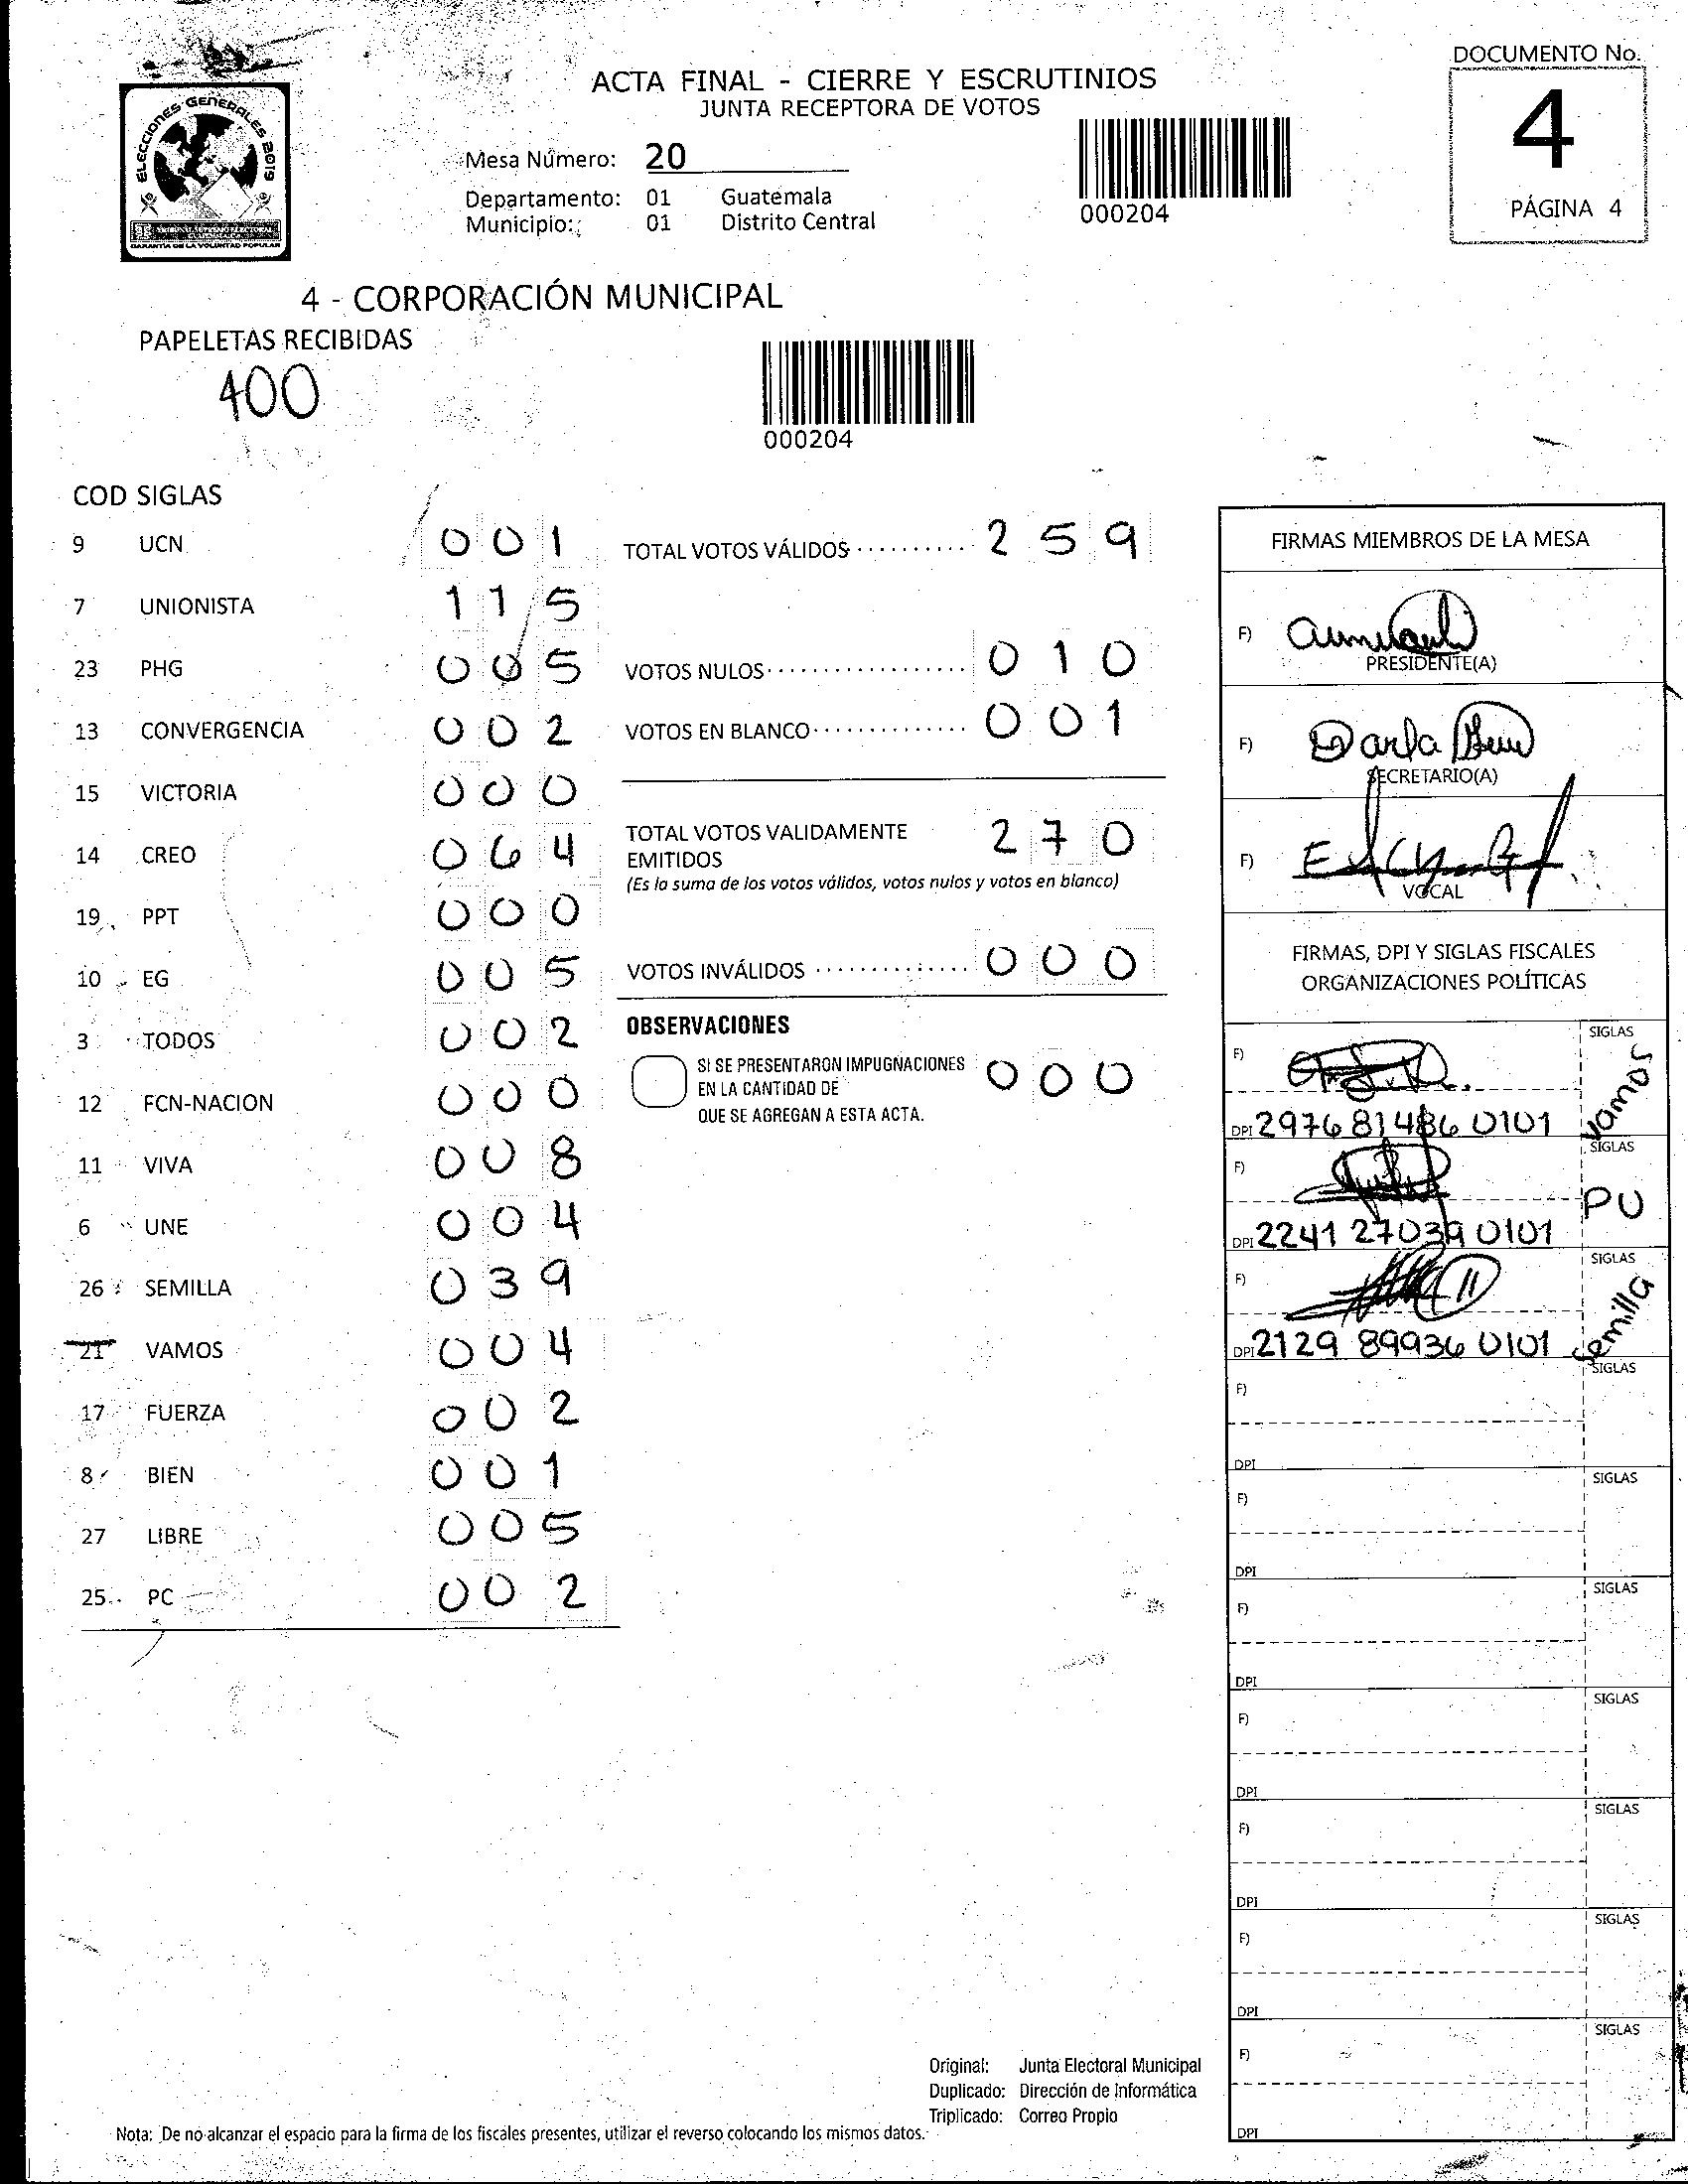 DOCUMENTO No.
4
PÁGINA 4
ELECCIONES GENERALES 2019
GARANTÍA DE LA VOLUNTAD POPULAR
ACTA FINAL - CIERRE Y ESCRUTINIOS
JUNTA RECEPTORA DE VOTOS
Mesa Número: 20
Departamento: 01 Guatemala
Municipio: 01 Distrito Central
000204
4 - CORPORACIÓN MUNICIPAL
PAPELETAS RECIBIDAS
400
000204
COD SIGLAS
9 UCN 001
7 UNIONISTA 115
23 PHG 005
13 CONVERGENCIA 002
15 VICTORIA 000
14 CREO 064
19 PPT 000
10 EG 005
3 TODOS 002
12 FCN-NACION 000
11 VIVA 008
6 UNE 004
26 SEMILLA 039
21 VAMOS 004
17 FUERZA 002
8 BIEN 001
27 LIBRE 005
25 PC 002
TOTAL VOTOS VÁLIDOS 259
VOTOS NULOS 010
VOTOS EN BLANCO 001
TOTAL VOTOS VALIDAMENTE
EMITIDOS 270
(Es la suma de los votos válidos, votos nulos y votos en blanco)
VOTOS INVÁLIDOS 000
OBSERVACIONES
SI SE PRESENTARON IMPUGNACIONES
EN LA CANTIDAD DE 000
QUE SE AGREGAN A ESTA ACTA.
FIRMAS MIEMBROS DE LA MESA
F)
PRESIDENTE(A)
F) Darla
SECRETARIO(A)
F)
VOCAL
FIRMAS, DPI Y SIGLAS FISCALES
ORGANIZACIONES POLÍTICAS
F) SIGLAS
DPI 2976 81486 0101 Vamos
F) SIGLAS
PU
DPI 2241 27039 0101
F) SIGLAS
DPI 2129 89936 0101 Semilla
F) SIGLAS
DPI
F) SIGLAS
DPI
F) SIGLAS
DPI
F) SIGLAS
DPI
F) SIGLAS
DPI
F) SIGLAS
DPI
F) SIGLAS
DPI
Original: Junta Electoral Municipal
Duplicado: Dirección de Informática
Triplicado: Correo Propio
Nota: De no alcanzar el espacio para la firma de los fiscales presentes, utilizar el reverso colocando los mismos datos.